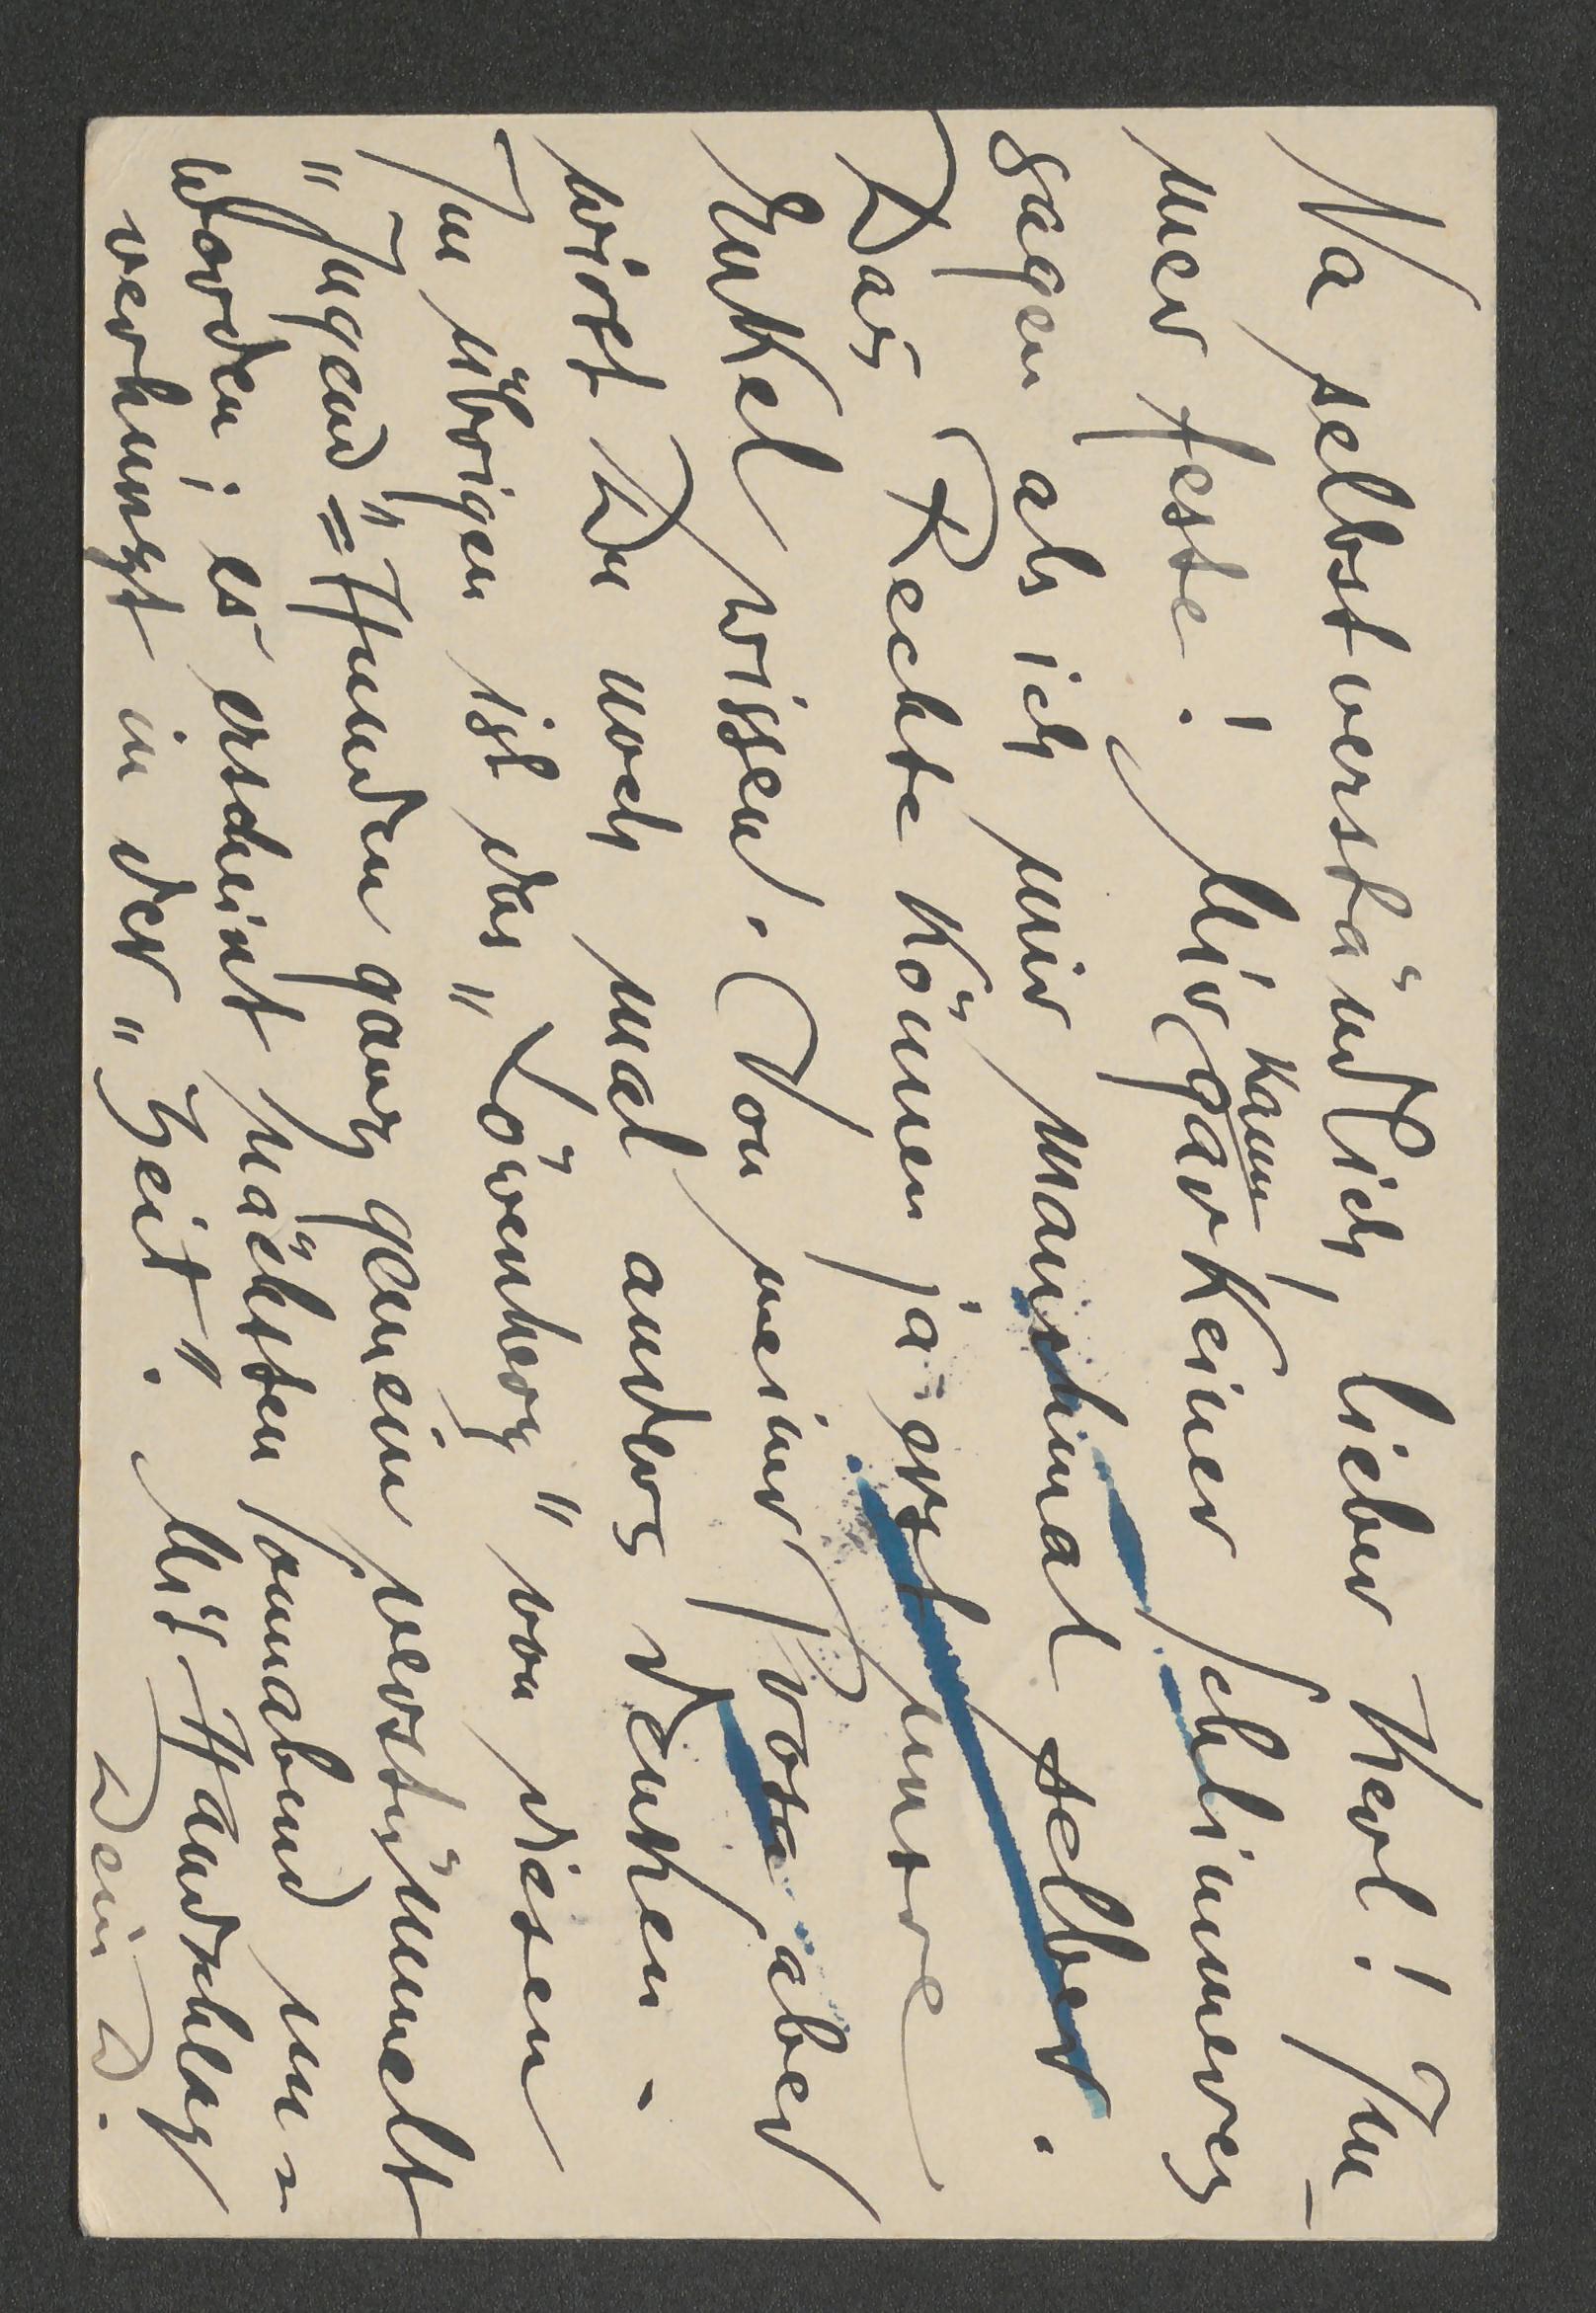 Na selbstverständlich, lieber Karl! Im-
mer feste! Mir kann gar Keiner Schlimmeres
sagen als ich mir manchmal selber.
Das Rechte können ja erst unsre
Enkel wissen. Von meiner Prosa aber
wirst Du noch mal anders denken.
Im übrigen ist das "Löwenherz" von diesen
"Jugend"=Hunden ganz gemein verstümmelt
worden; es erscheint nächsten Sonnabend un=
verhunzt in der "Zeit". Mit Handschlag
Dein D.